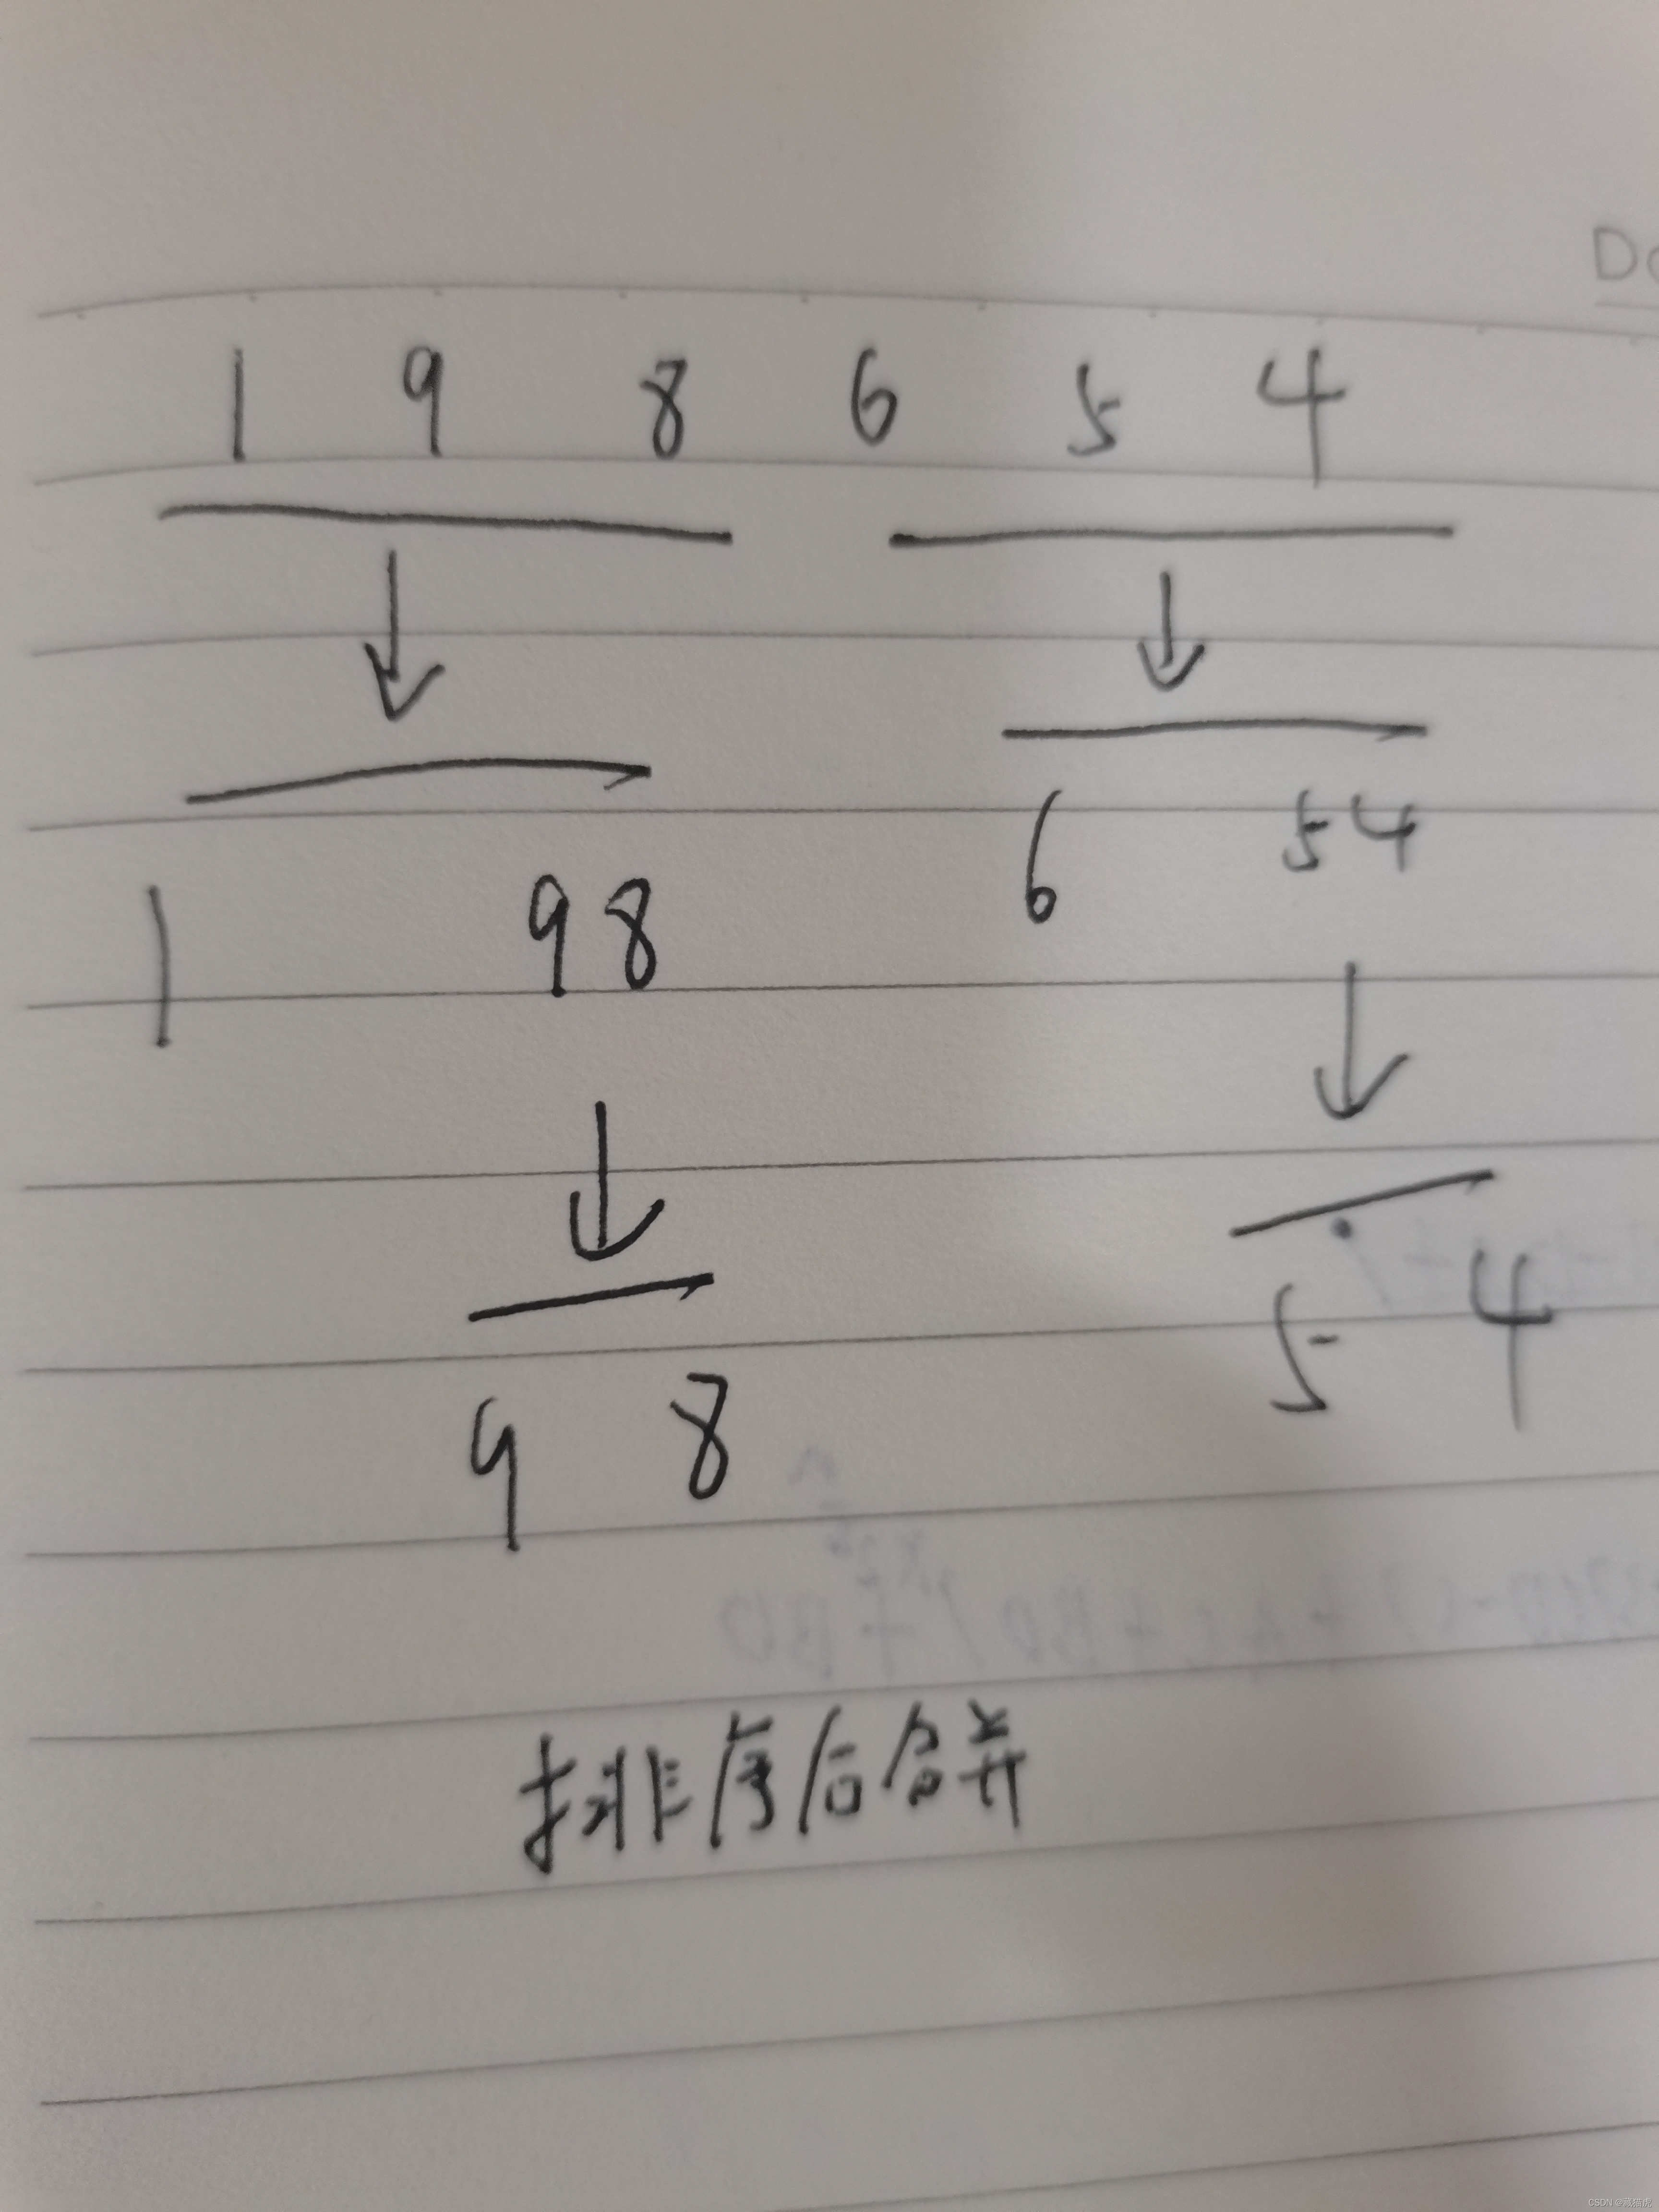 1 9 8 6 5 4
1 98 6 54
9 8 5 4
排序后合并
CSDN @藏猫虎